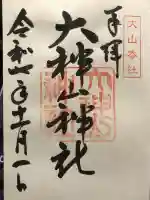 大山奥社
奉拝
大神山神社
令和 年 月一日